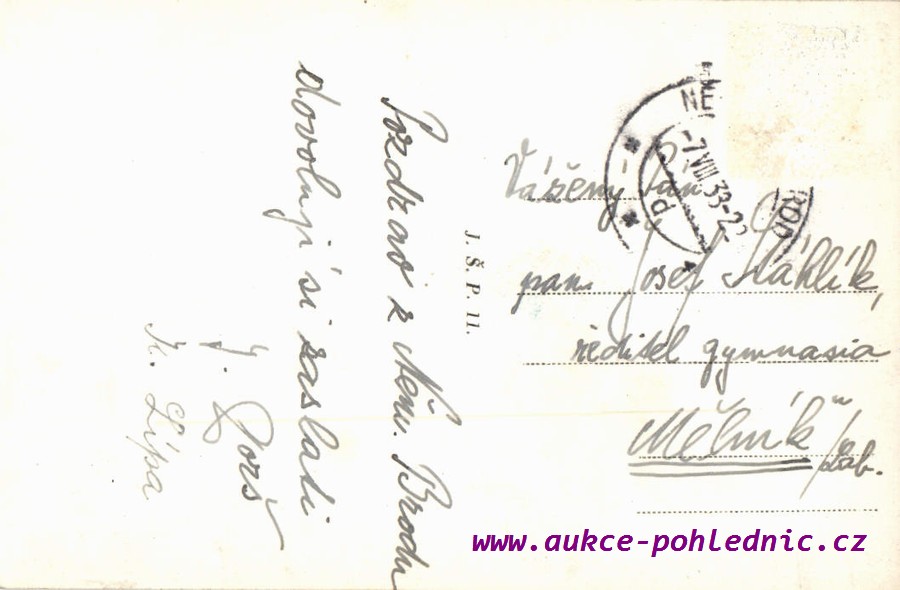 Pozdrav z Něm. Brodu
dovolují si zaslati
J. Dorš
K. Lípa
J. Š. P. 11.
NĚ ROD
-7.VIII.33-2
Vážený pan
pan Josef Stáhlík,
ředitel gymnasia
Mělník n/Lab.
www.aukce-pohlednic.cz